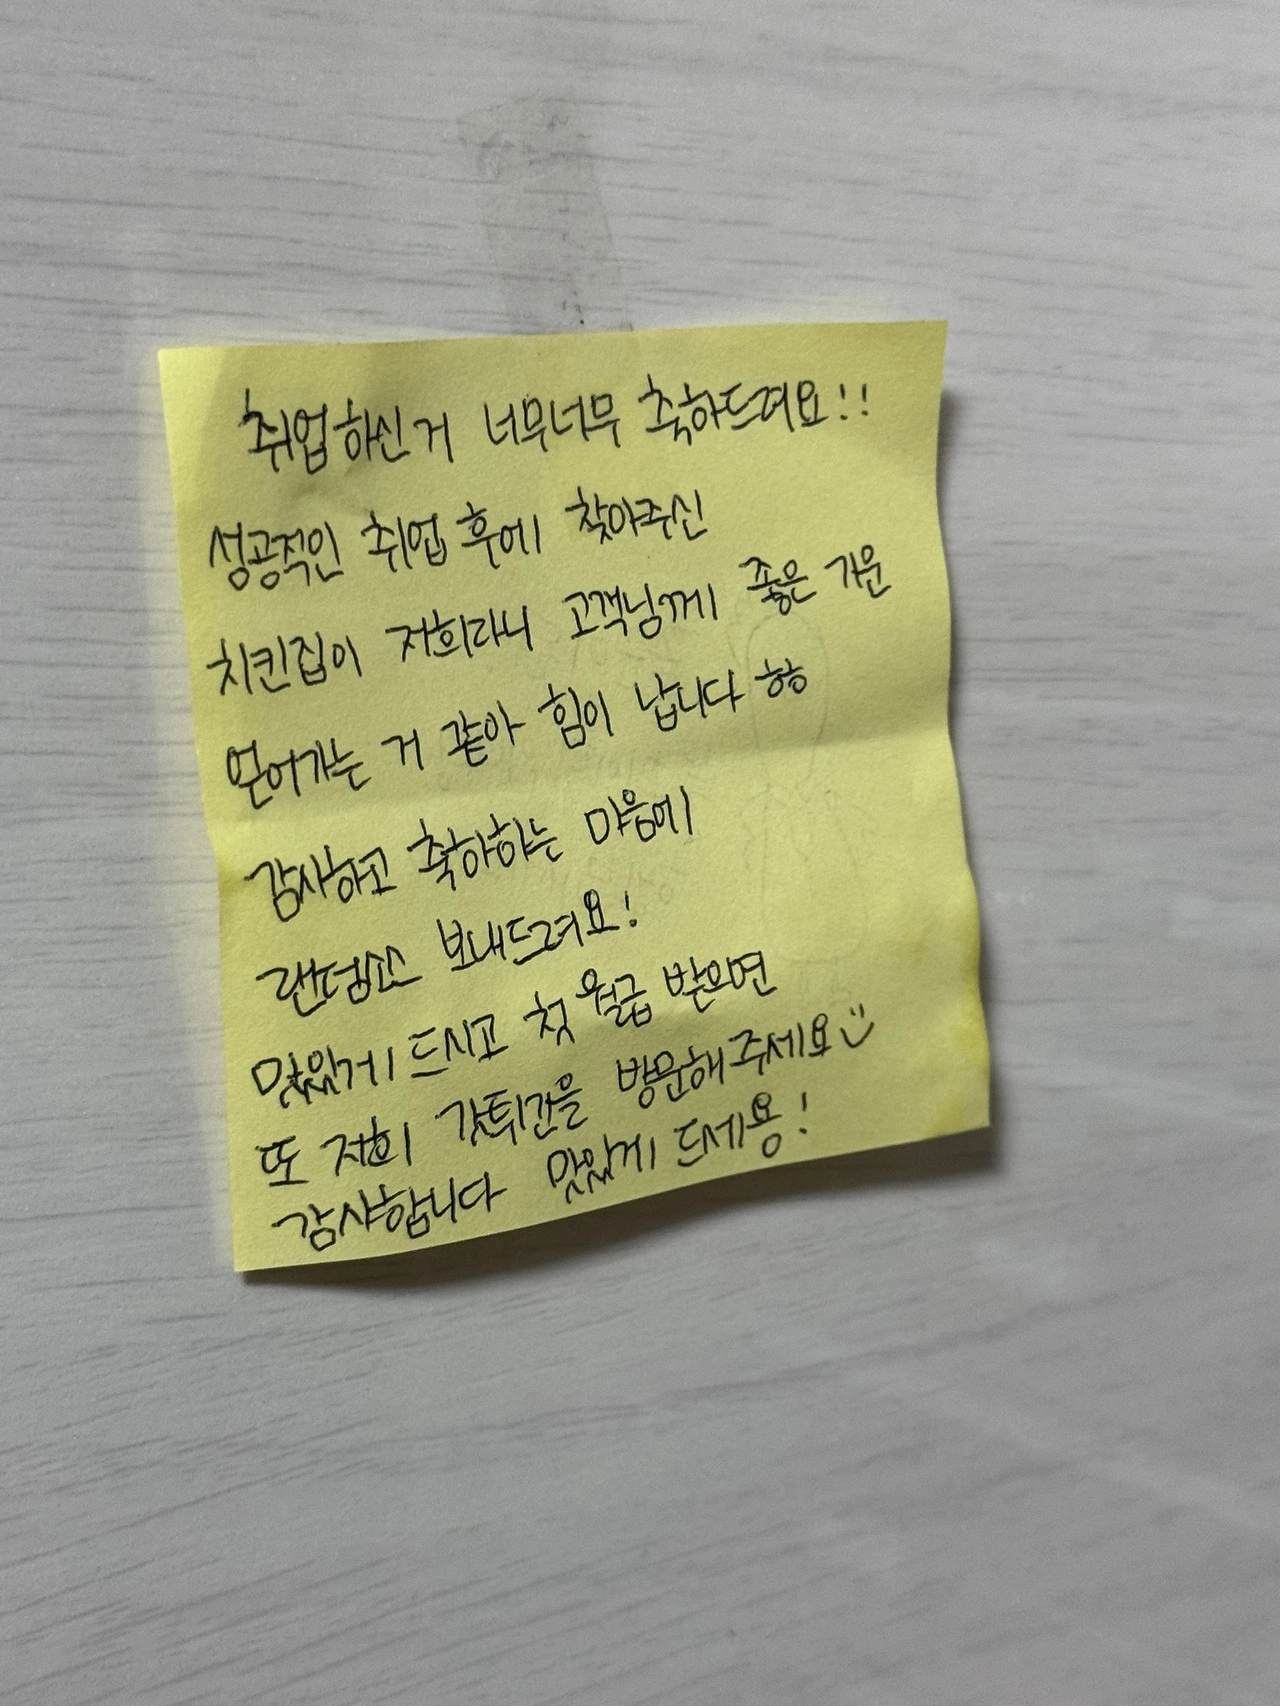 취업하신거 너무너무 축하드려요!!
성공적인 취업 후에 찾아주신
치킨집이 저희라니 고객님께 좋은 기운
얻어가는 거 같아 힘이 납니다 ㅎㅎ
감사하고 축하하는 마음에
랜덤소스 보내드려요!
맛있게 드시고 첫 월급 받으면
또 저희 갓튀간을 방문해주세요
감사합니다 맛있게 드세용!